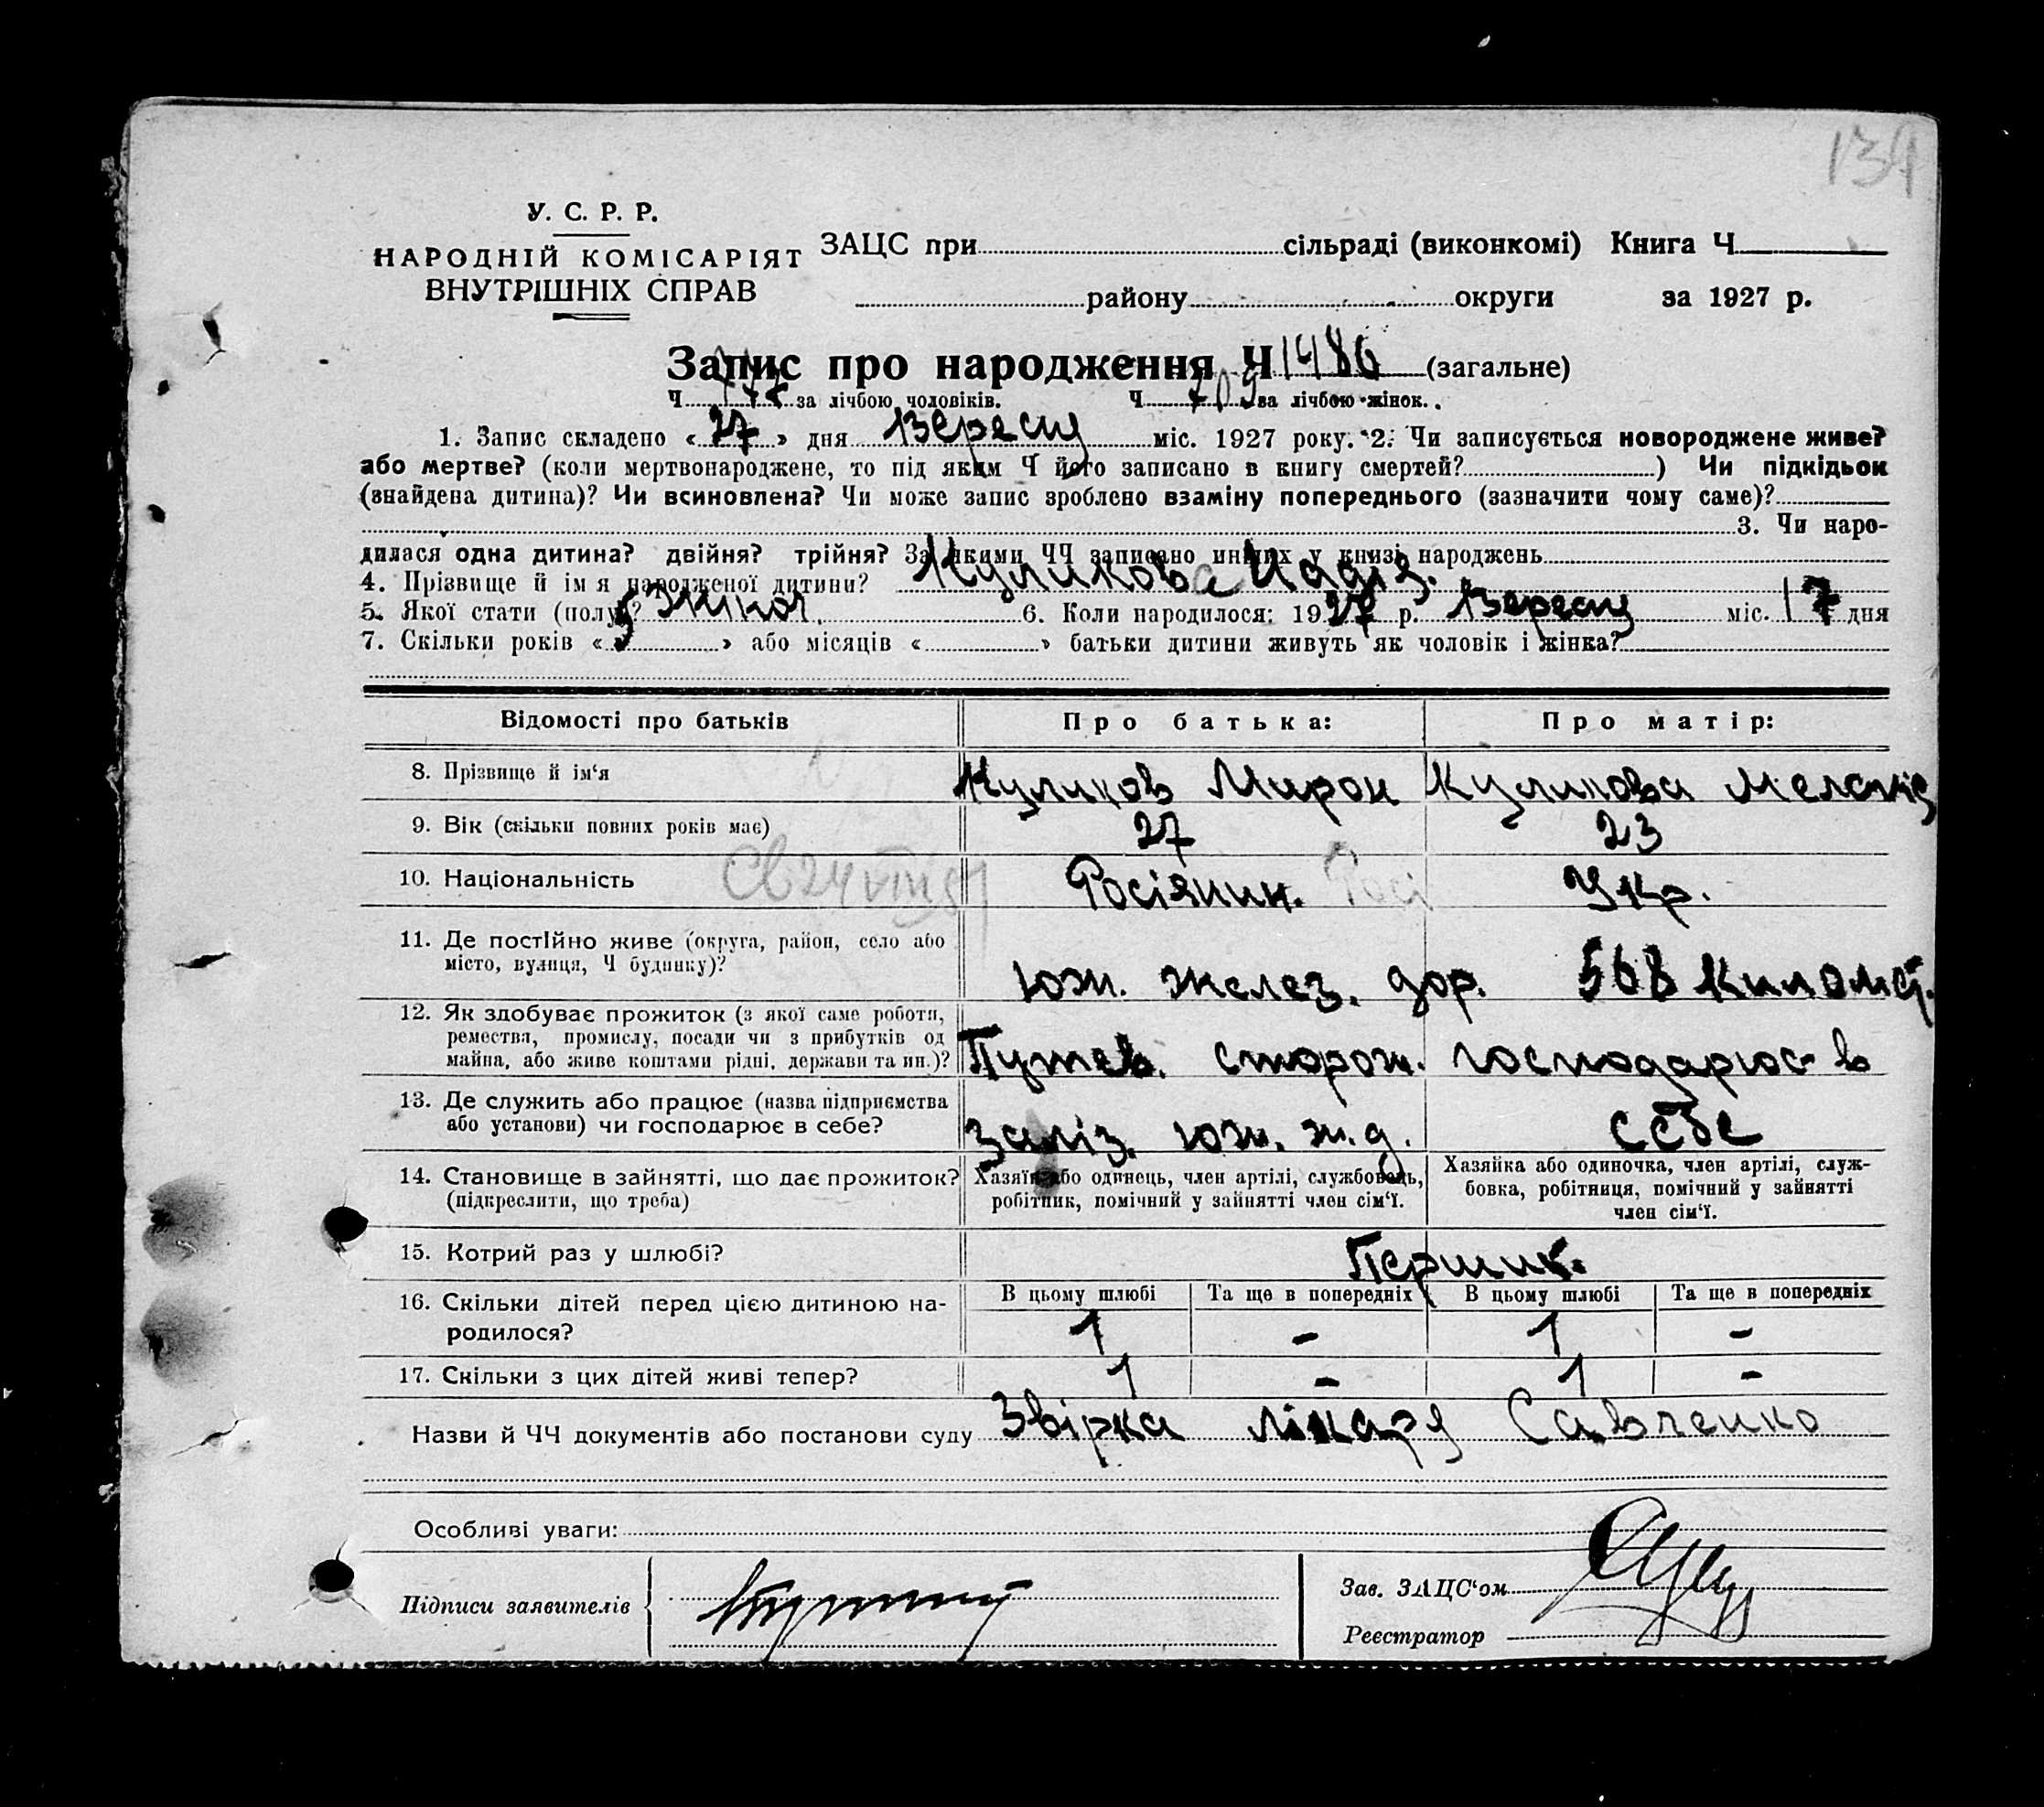 134
У. С. Р. Р.
НАРОДНІЙ КОМІСАРІЯТ
ВНУТРІШНІХ СПРАВ
ЗАЦС при сільраді (виконкомі) Книга Ч
району округи за 1927 р.
Запис про народження Ч 1486 (загальне)
Ч за лічбою чоловіків. Ч 709 за лічбою жінок.
1. Запис складено « 27 » дня Вересня міс. 1927 року. 2. Чи записується новороджене живе?
або мертве? (коли мертвонароджене, то під яким Ч його записано в книгу смертей? ) Чи підкідьок
(знайдена дитина)? Чи всиновлена? Чи може запис зроблено взаміну попереднього (зазначити чому саме)?
3. Чи наро-
дилася одна дитина? двійня? трійня? За якими ЧЧ записано инших у книзі народжень
4. Прізвище й ім я народженої дитини? Куликова Надія.
5. Якої стати (полу)? Жіноч. 6. Коли народилося: 1927 р. Вересня міс. 17 дня
7. Скільки років « 5 » або місяців « » батьки дитини живуть як чоловік і жінка?
Відомості про батьків Про батька: Про матір:
8. Прізвище й ім'я Куликов Мирон Куликова Меланія
9. Вік (скільки повних років має) 27 23
10. Національність Росіянин. Росі Укр.
11. Де постійно живе (округа, район, село або
місто, вулиця, Ч будинку)? Юж. желез. дор. 568 километ.
12. Як здобуває прожиток (з якої саме роботи,
ремества, промислу, посади чи з прибутків од
майна, або живе коштами рідні, держави та ин.)? Путев. сторож. господарює в
13. Де служить або працює (назва підприємства
або установи) чи господарює в себе? заліз. юж. ж.д. себе
14. Становище в зайнятті, що дає прожиток?
(підкреслити, що треба)
Хазяїн або одинець, член артілі, службовець,
робітник, помічний у зайнятті член сім'ї.
Хазяйка або одиночка, член артілі, служ-
бовка, робітниця, помічний у зайнятті
член сім'ї.
15. Котрий раз у шлюбі? Перший.
16. Скільки дітей перед цією дитиною на-
родилося?
В цьому шлюбі Та ще в попередніх В цьому шлюбі Та ще в попередніх
1 - 1 -
17. Скільки з цих дітей живі тепер? 1 - 1 -
Назви й ЧЧ документів або постанови суду Звірка лікаря Савченко
Особливі уваги:
Підписи заявителів
Зав. ЗАЦС'ом
Реєстратор